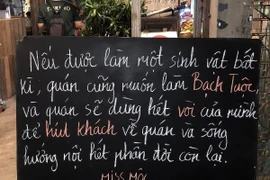 Nếu được làm một sinh vật bất
kì, quán cũng muốn làm Bạch Tuộc,
và quán sẽ dùng hết vòi của mình
để hút khách về quán và sống
hưởng nội hết phần đời còn lại.
MISS MỘC